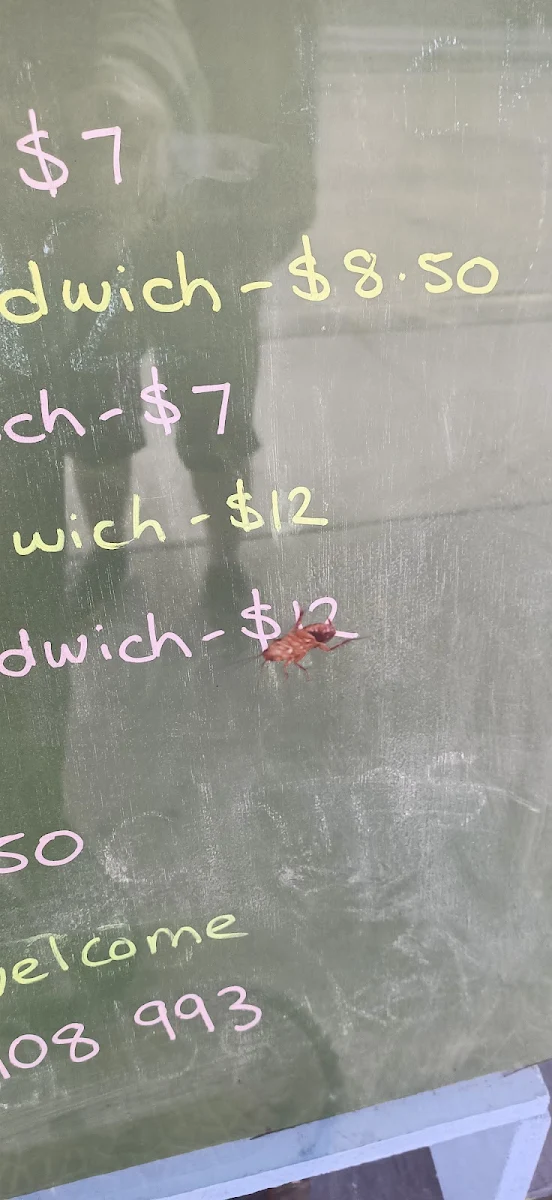 $7
dwich - $8.50
ch - $7
wich - $12
dwich - $12
50
elcome
108 993